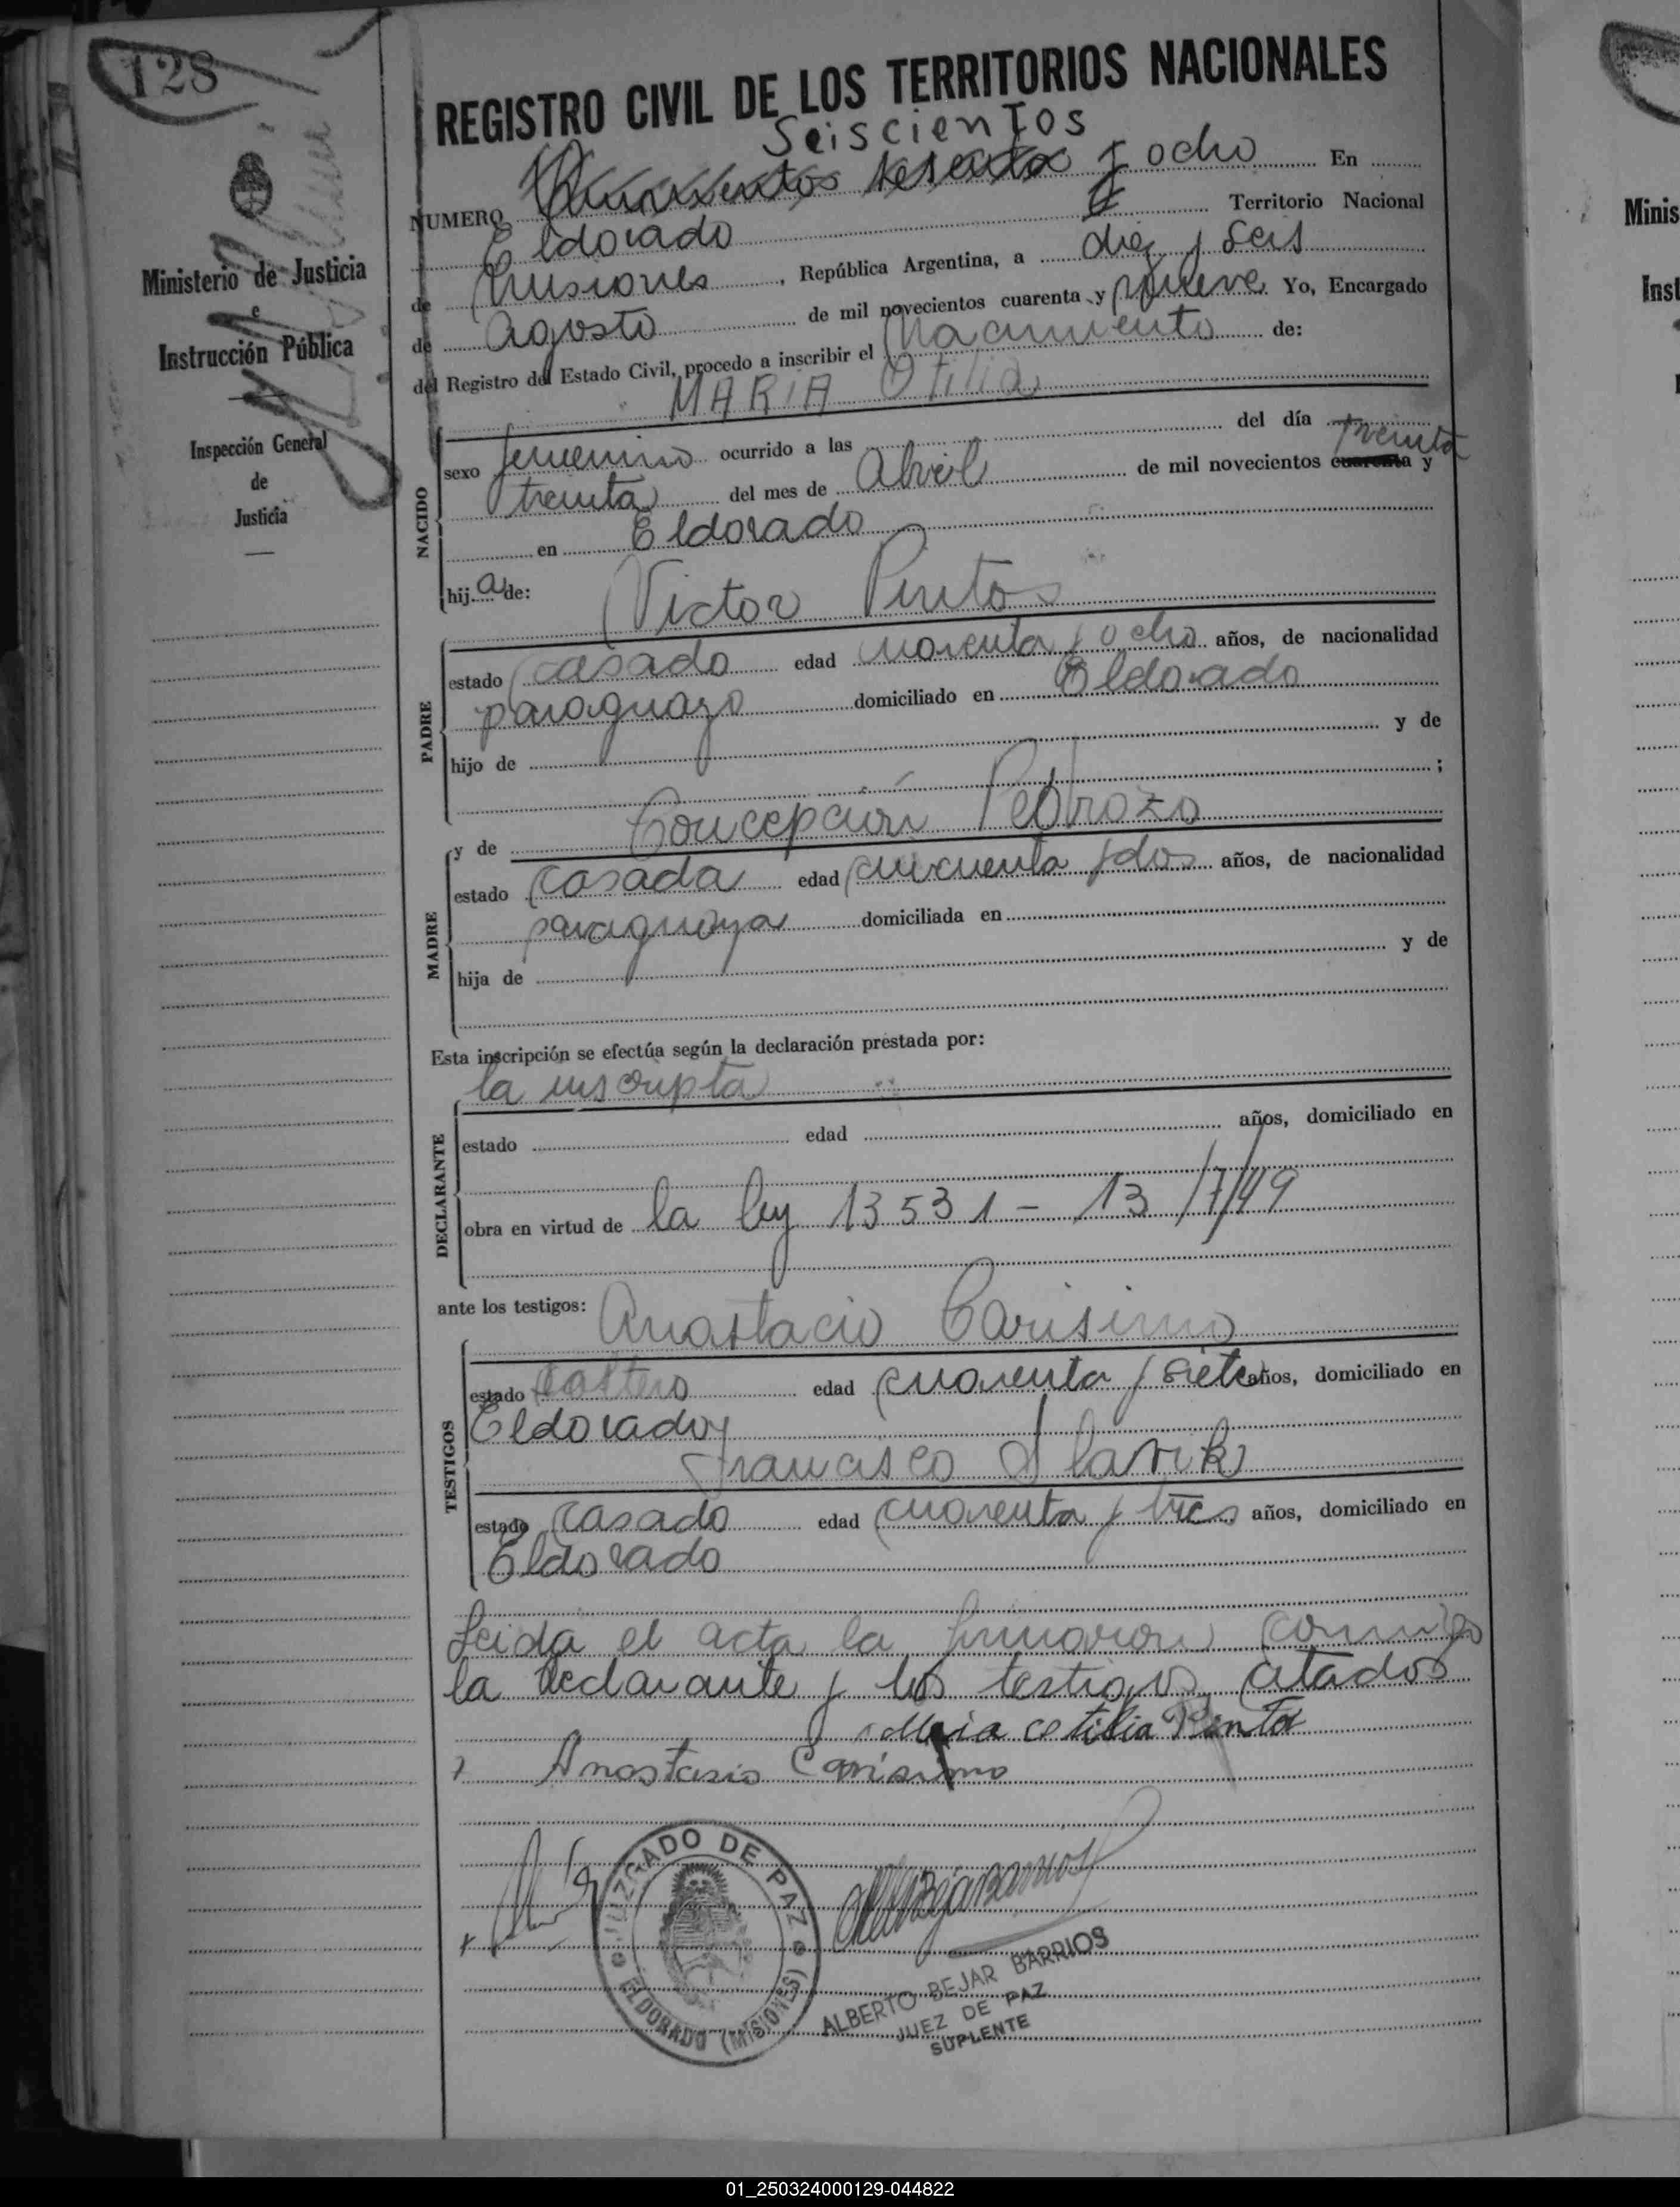 128
REGISTRO CIVIL DE LOS TERRITORIOS NACIONALES
Seiscientos
NUMERO Quinientos sesenta y ocho En
Eldorado Territorio Nacional
de Misiones, República Argentina, a diez y seis
de Agosto de mil novecientos cuarenta y nueve Yo, Encargado
del Registro del Estado Civil, procedo a inscribir el Nacimiento de:
MARIA Otilia
Ministerio de Justicia
e
Instrucción Pública
Inspección General
de
Justicia
NACIDO
sexo femenino ocurrido a las del día
treinta del mes de Abril de mil novecientos cuarenta y treinta
en Eldorado
hij a de: Victor Pinto
PADRE
estado casado edad cuarenta y ocho años, de nacionalidad
paraguayo domiciliado en Eldorado
hijo de y de
;
y de Concepción Pedrozo
MADRE
estado casada edad cincuenta y dos años, de nacionalidad
paraguaya domiciliada en
hija de y de
Esta inscripción se efectúa según la declaración prestada por:
la inscripta
DECLARANTE
estado edad años, domiciliado en
obra en virtud de la ley 13531 - 13/7/49
ante los testigos: Anastacio Carisimo
TESTIGOS
estado soltero edad cuarenta y siete años, domiciliado en
Eldorado y
Francisco
estado casado edad cuarenta y tres años, domiciliado en
Eldorado
Leida el acta la firmaron conmigo
la declarante y los testigos citados
Maria Otilia Pinto
Anastasio Carisimo
JUZGADO DE PAZ
ELDORADO (MISIONES)
ALBERTO BEJAR BARRIOS
JUEZ DE PAZ
SUPLENTE
Minis
Inst
01_250324000129-044822